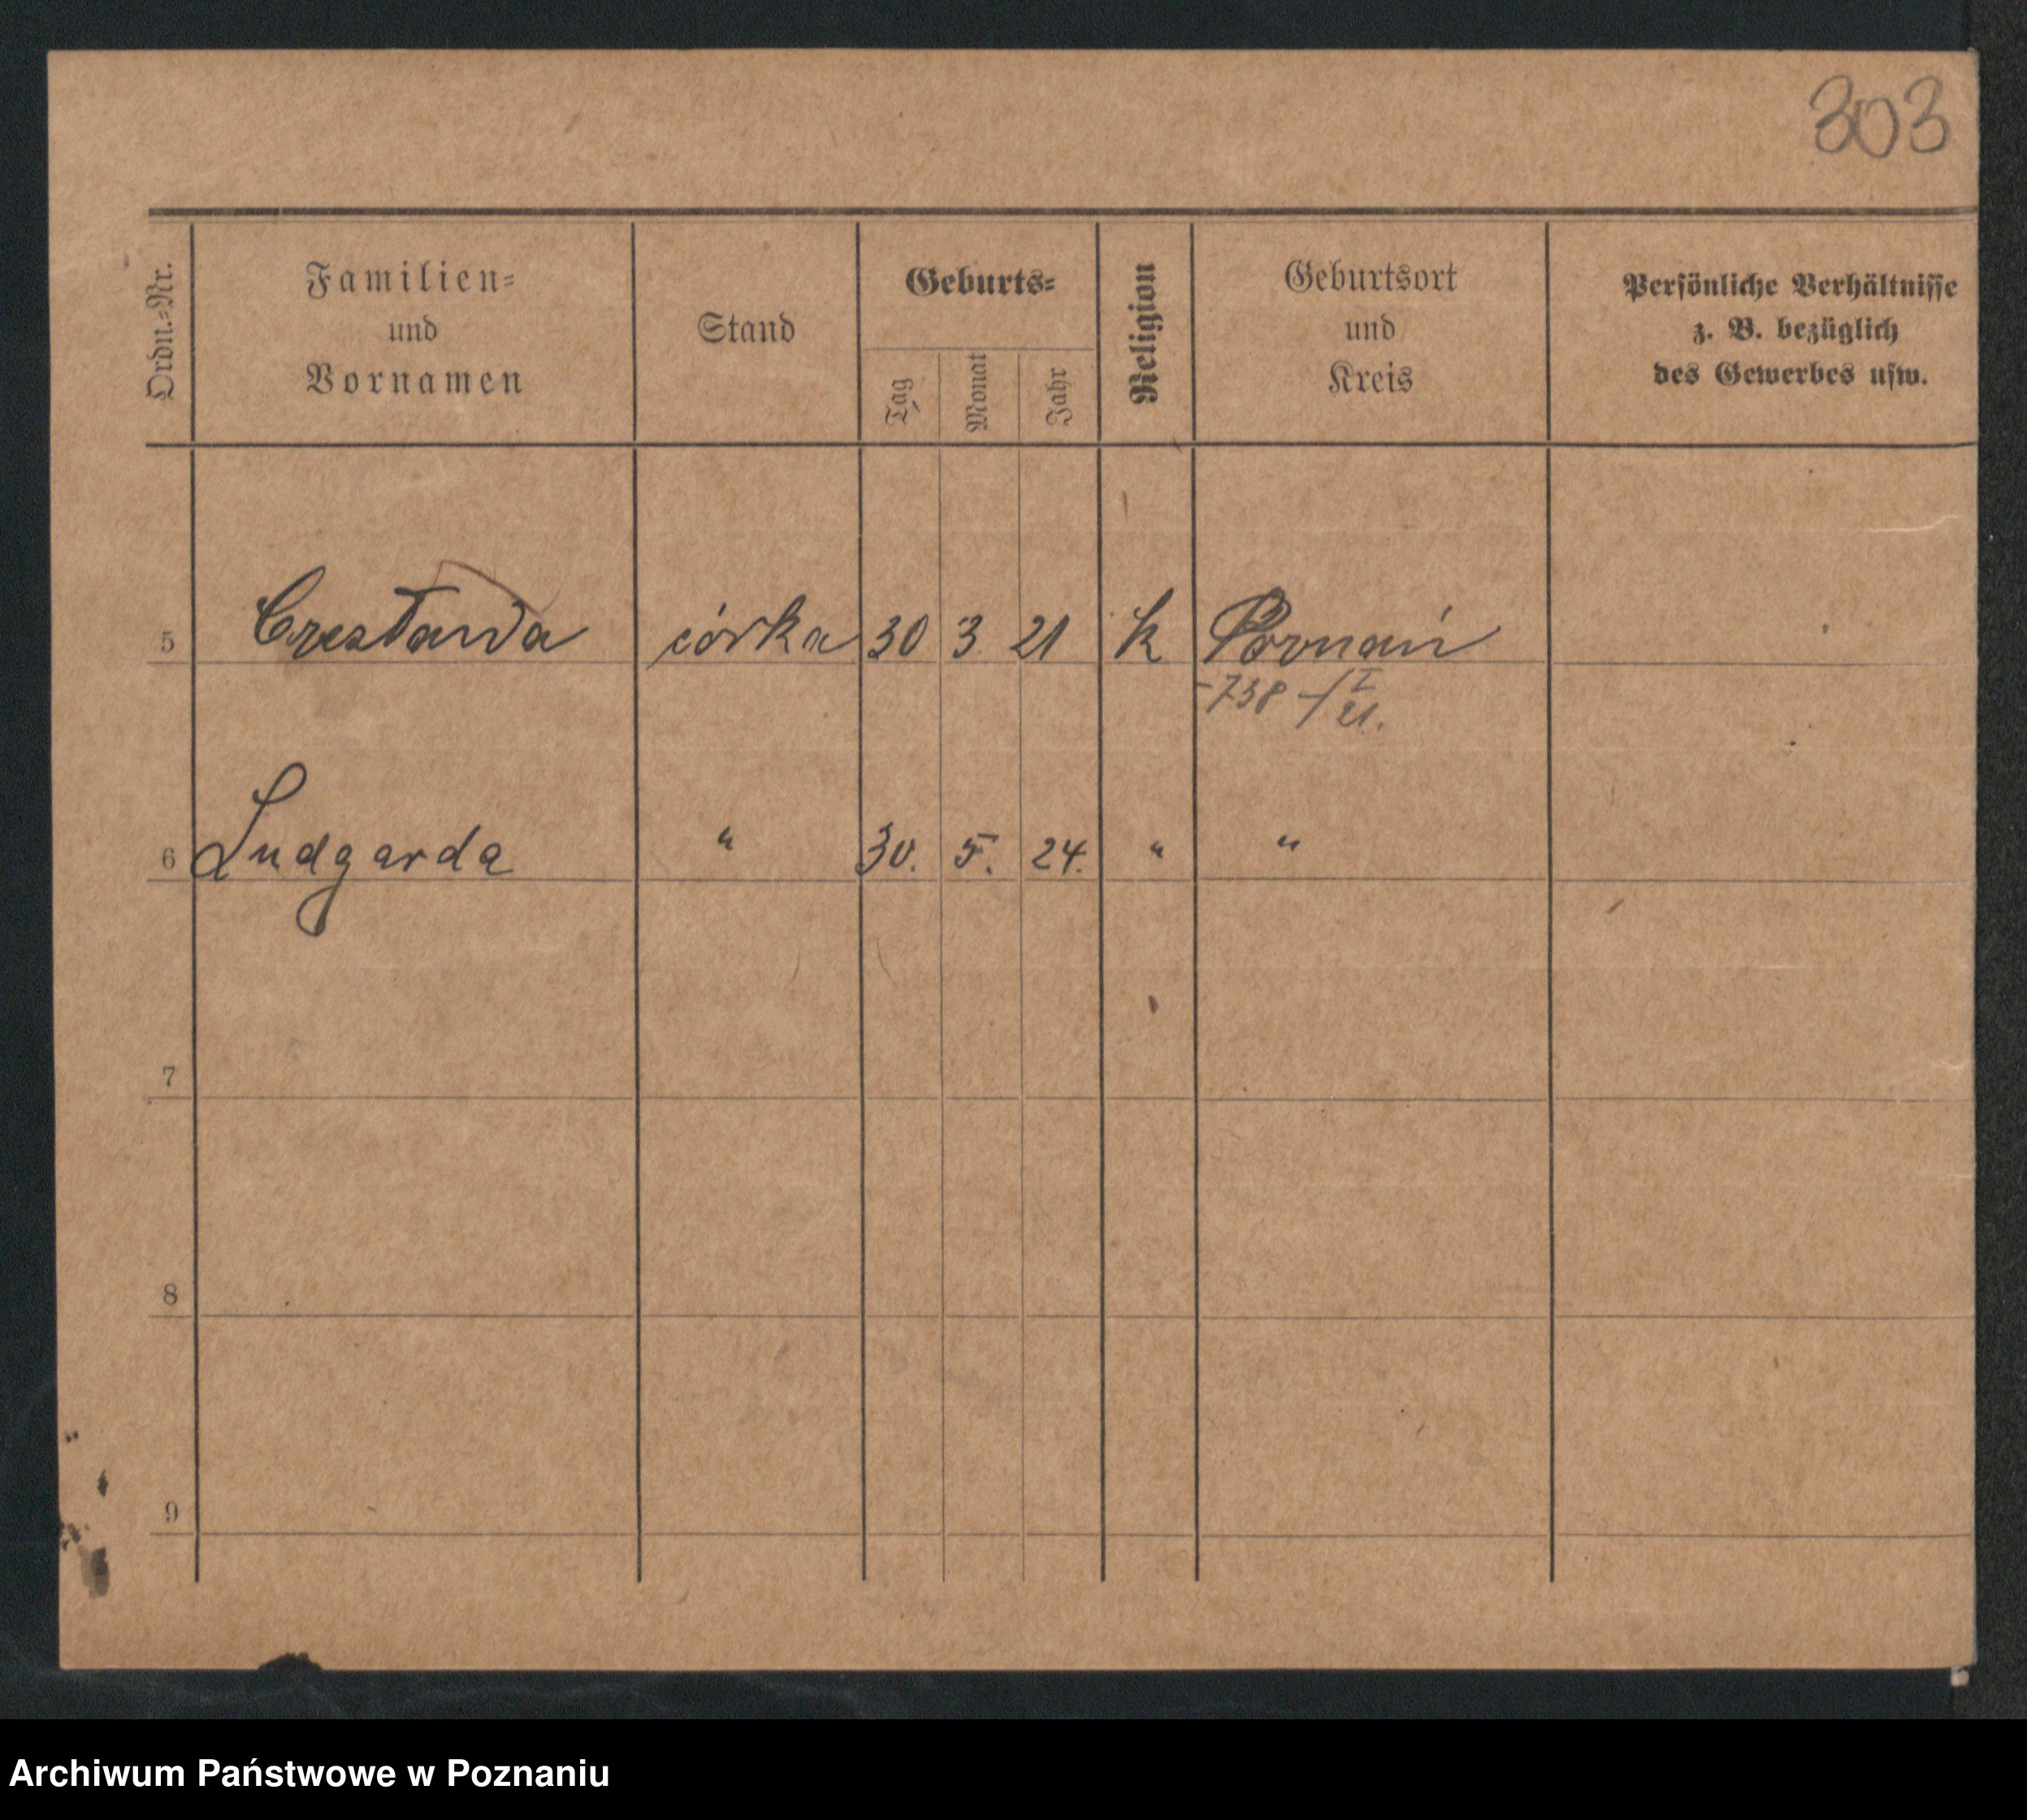 303
Ordn.=Nr.
Familien=
und
Vornamen
Stand
Geburts=
Tag
Monat
Jahr
Religion
Geburtsort
und
Kreis
Persönliche Verhältnisse
z. B. bezüglich
des Gewerbes usw.
5 Czesława córka 30 3 21 k Poznań
-738-/I 21.
6 Ludgarda " 30. 5. 24. " "
7
8
9
Archiwum Państwowe w Poznaniu